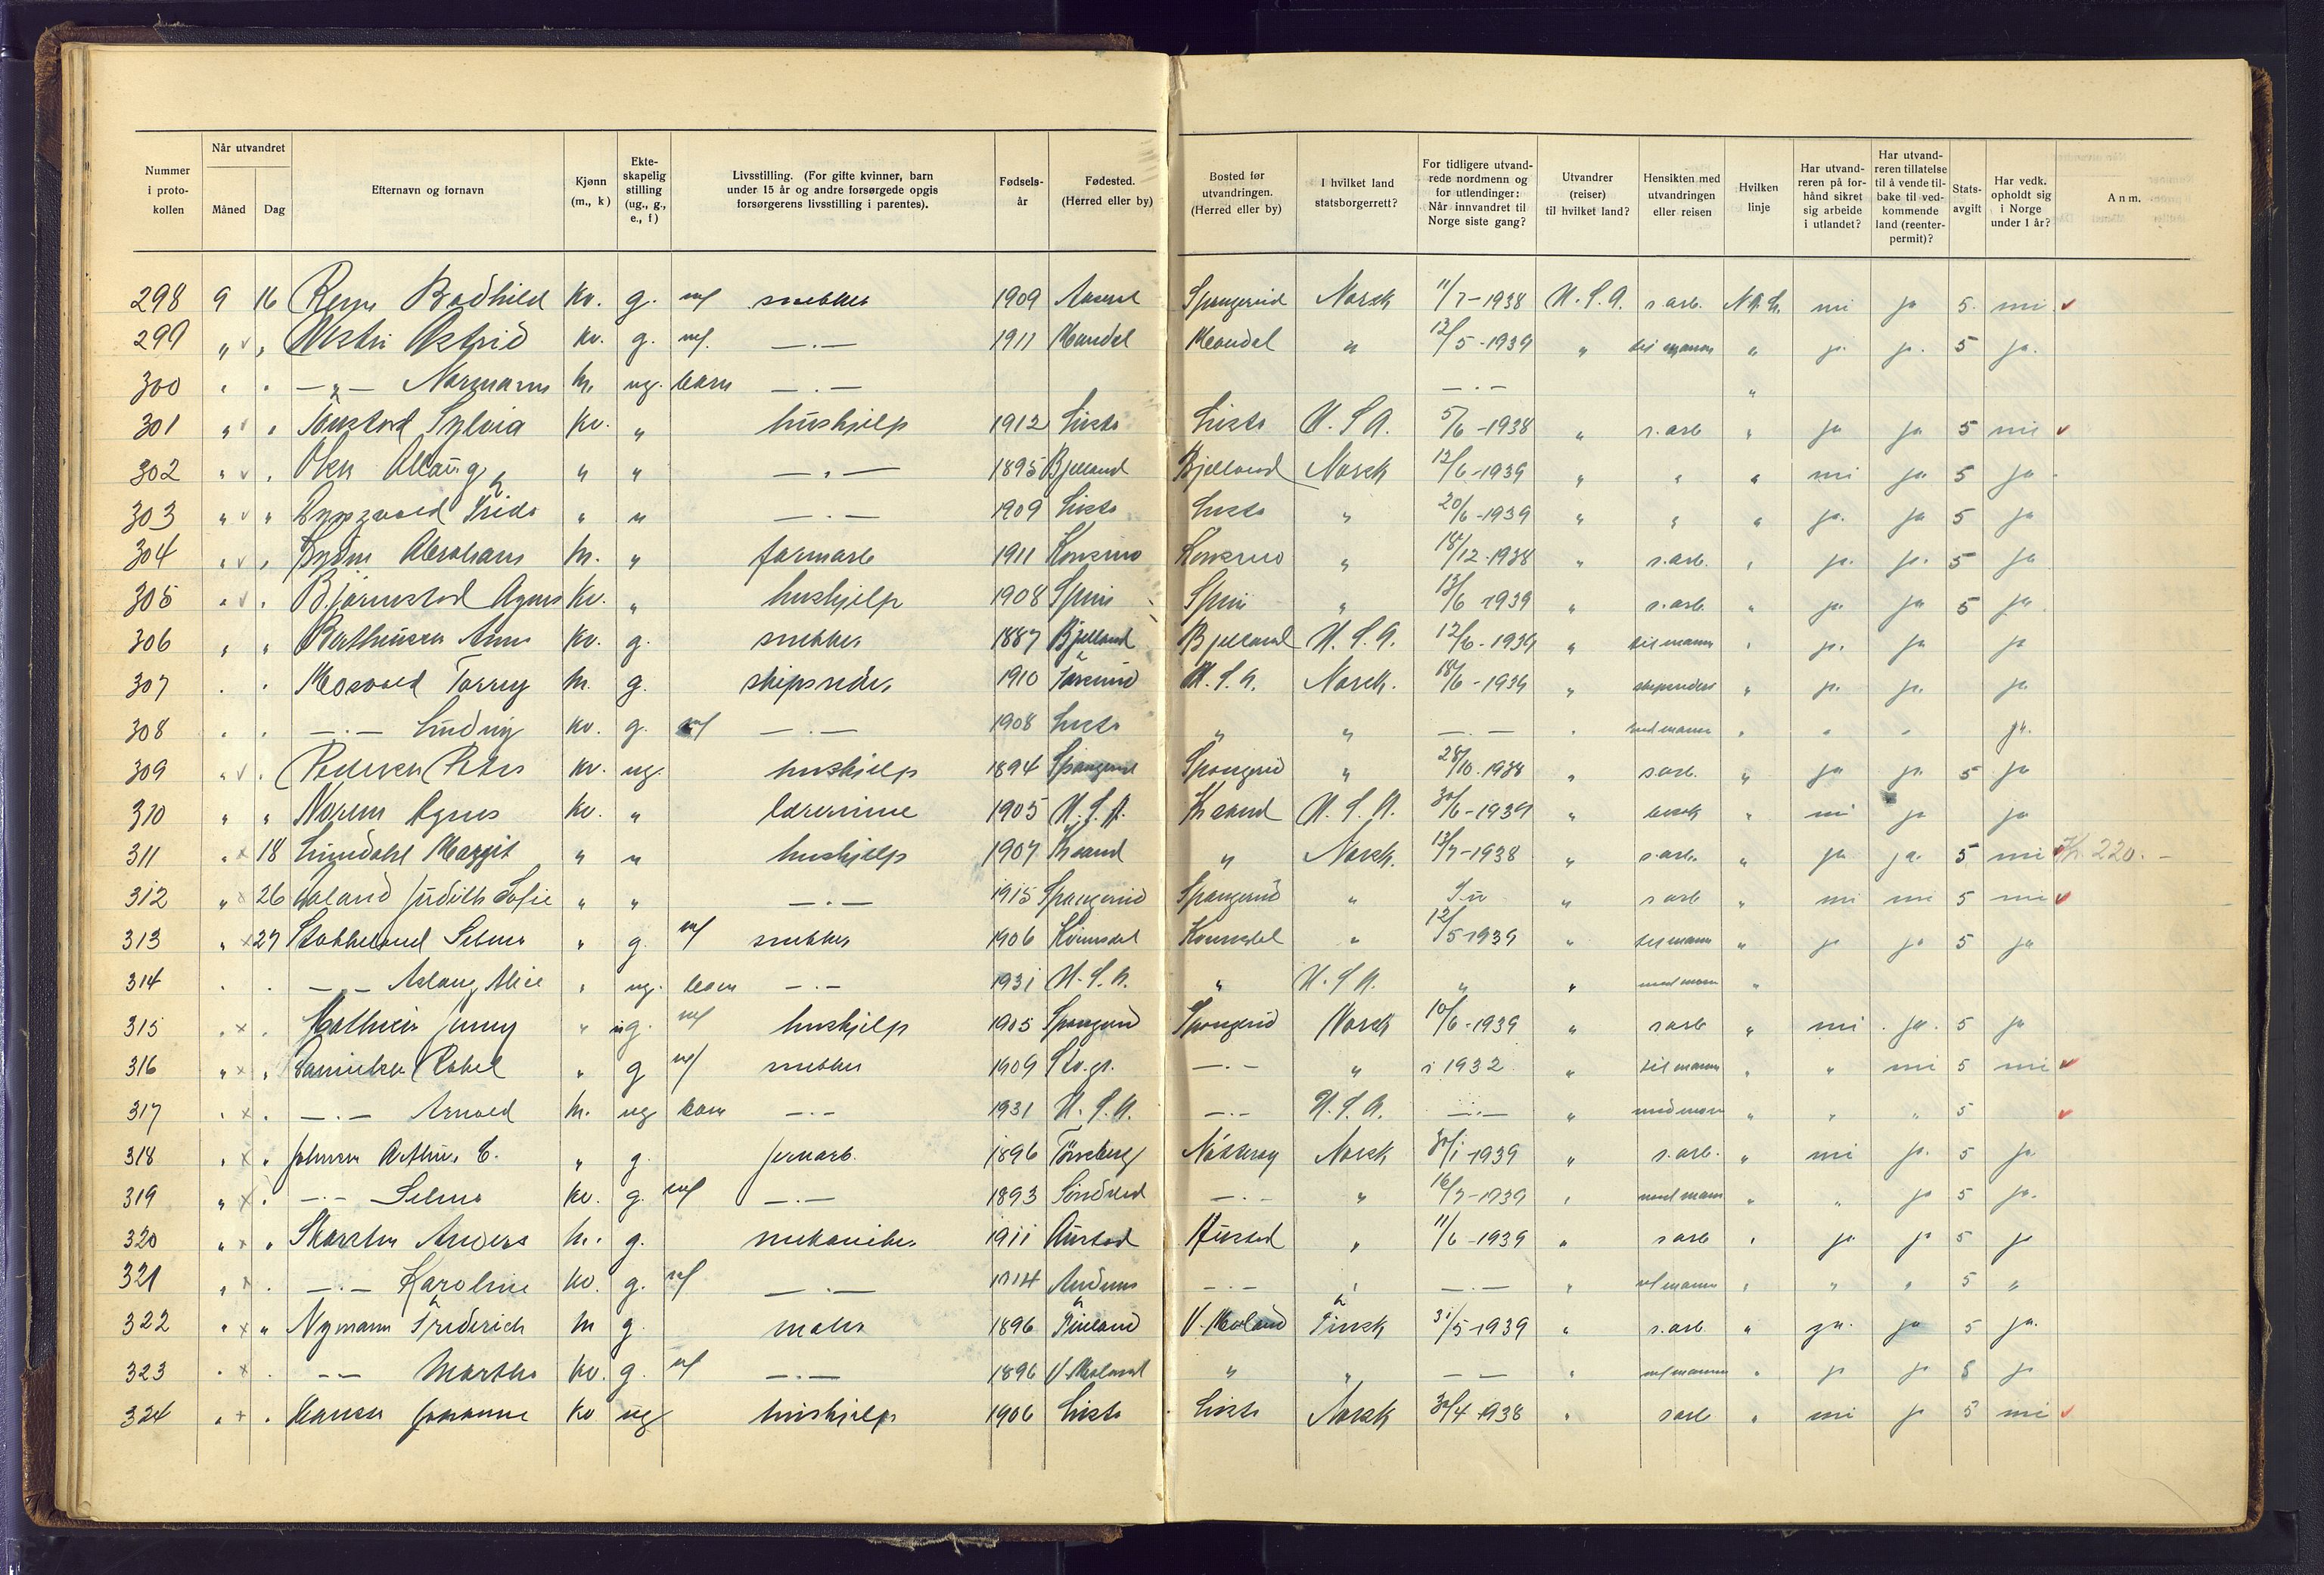 Nummer i protokollen | Når utvandret Måned | Dag | Efternavn og fornavn | Kjønn (m., k) | Ekteskapelig stilling (ug., g., e., f) | Livsstilling. (For gifte kvinner, barn under 15 år og andre forsørgede opgis forsørgerens livsstilling i parentes). | Fødselsår | Fødested. (Herred eller by) | Bosted før utvandringen. (Herred eller by) | I hvilket land statsborgerrett? | For tidligere utvandrede nordmenn og for utlendinger: Når innvandret til Norge siste gang? | Utvandrer (reiser) til hvilket land? | Hensikten med utvandringen eller reisen | Hvilken linje | Har utvandreren på forhånd sikret sig arbeide i utlandet? | Har utvandreren tillatelse til å vende tilbake til vedkommende land (reenterpermit)? | Statsavgift | Har vedk. opholdt sig i Norge under 1 år? | Anm.
298 9 16 Bodhild Kv. g. snekker 1909 Spangereid Norsk 11/7-1938 U.S.A. s. arb. N.A.L. nei ja 5. nei ✓
299 " v " Astrid Kv. g. —.— 1911 Mandal Mandal " 12/5-1939 " til mann " ja. ja. 5 ja.
300 " " —"— Normann M. ug. barn —.— —.— "
301 " v " Sylvia Kv. " hushjelp 1912 Lista Lista U.S.A. 5/6-1938 " s. arb " ja ja 5 nei ✓
302 " v " " " —"— 1895 Bjelland Bjelland Norsk 12/6-1939 " " " nei ja 5 ja
303 " v " " " —.— 1909 Lista Lista " 20/6-1939 " " " ja. ja 5 ja
304 " v " Abraham M. " farmarb 1911 " 18/12-1938 " s. arb. " ja. ja. 5 ja
305 " v " Bjørnestad Agnes Kv. " hushjelp 1908 Spin Spin " 13/6 1939 " s. arb. " ja. ja 5 ja
306 " " Berthinsen Anna Kv. g. snekker 1887 Bjelland Bjelland U.S.A. 12/6-1939 " til mann " ja. ja ja
307 " " Mosvold Torrey M. g. skipsreder 1910 Farsund U.S.A. Norsk. 18/6-1939 " " ja. ja. ja.
308 " " —.— Kv. g. —.— 1908 Lista " " —.— " med mann " " " ja.
309 " v " Pedersen Petra Kv. ug. hushjelp 1894 Spangereid Spangereid " 28/10-1938 " s. arb. " ja ja 5 ja
310 " " Norem Agnes Kv. " lærerinne 1905 U.S.A. Krsand U.S.A. 30/6-1939 " besøk " nei ja ja
311 " x 18 Lunndahl Margit " " hushjelp 1907 Krsand " Norsk. 13/7-1938 " s. arb. " ja ja. 5 nei Kr. 220.-
312 " x 26 Judith Sofie " " —.— 1915 Spangereid Spangereid " " s arb " nei nei 5 nei ✓
313 " x 27 Stakkeland Selma " g. snekker 1906 Kvinesdal Kvinesdal " 12/5 1939 " til mann " ja ja 5 ja
314 " " —.— Aslaug Alice " ug. barn —.— 1931 U.S.A. " U.S.A. " " " "
315 " x " Jenny " ug. hushjelp 1905 Spangereid Spangereid Norsk 10/6-1939 " s arb " nei ja. 5 ja
316 " x " Rakel " g snekker 1909 —.— " i 1932 " til mann " " nei 5 nei ✓
317 " x " —.— Arnold M. ug barn —.— 1931 U.S.A. —.— U.S.A. —.— " " " " 5 ✓
318 " x " Johnsen Arthur C. " g. jernarb. 1896 Tønsberg Nøtterøy Norsk 30/1-1939 " s. arb. " nei ja. 5 ja
319 " x " —.— Selma Kv. g. —.— 1893 —.— " 16/7-1939 " med mann " ja 5 ja.
320 " x " Anders M. g. mekaniker 1911 Austad Austad " 11/6-1939 " s arb " ja ja 5 ja
321 " x " —.— Karoline Kv. g. —.— 1914 —.— " —.— " " " " 5 "
322 " x " Nymann Frederich M g. maler 1896 Finland V. Moland Finsk 31/5-1939 " s. arb " ja. ja 5 ja.
323 " x " —— Martha Kv. g. —.— 1896 V. Moland " " —— " " ja ja 5 ja
324 " x " Hansen Johanne Kv ug hushjelp 1906 Lista Lista Norsk 30/4-1938 " s arb " nei ja 5 nei ✓